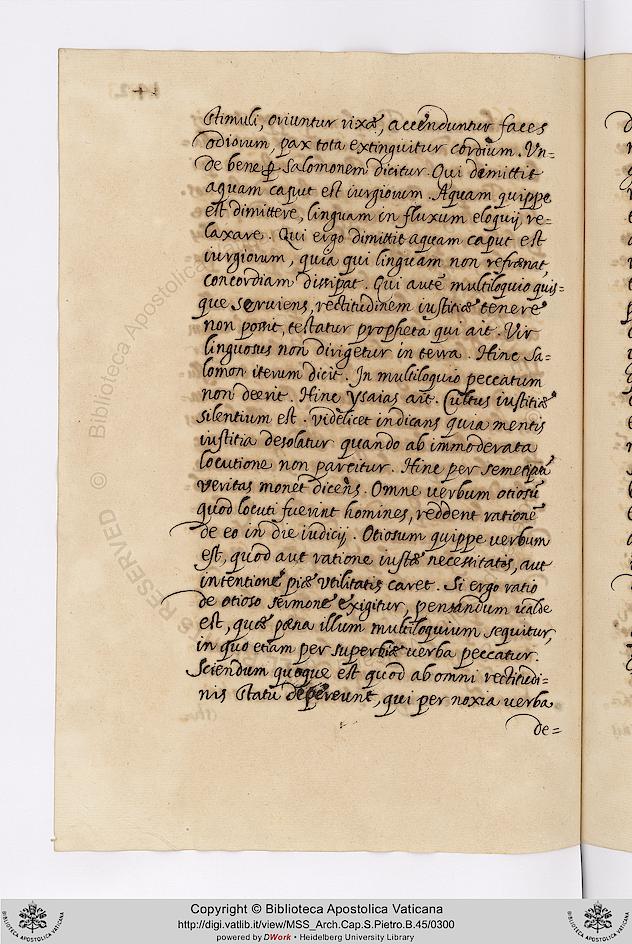 Stimuli, oriuntur rixæ, accenduntur faces
odiorum, pax tota extinguitur cordium. Un=
de bene ꝑ. Salomonem dicitur. Qui dimittit
aquam caput est iurgiorum. Aquam quippe
est dimittere, linguam in fluxum eloquij re=
laxare. Qui ergo dimittit aquam caput est
iurgiorum, quia qui linguam non refrænat,
concordiam dissipat. Qui autē multiloquio quis=
que seruiens, rectitudinem iustitiæ tenere
non possit, testatur propheta qui ait. Vir
linguosus non dirigetur in terra. Hinc Sa=
lomon iterum dicit. In multiloquio peccatum
non deerit. Hinc ysaias ait. Cultus iustitiæ
silentium est. videlicet indicans quia mentis
iustitia desolatur quando ab immoderata
locutione non parcitur. Hinc per semetipsā
veritas monet dicens. Omne uerbum otiosū
quod locuti fuerint homines, reddent rationē
de eo in die iudicij. Otiosum quippe uerbum
est, quod aut ratione iustæ necessitatis, aut
intentione piæ utilitatis caret. Si ergo ratio
de otioso sermone exigitur, pensandum ualde
est, quæ pœna illum multiloquium sequitur,
in quo etiam per superbiæ uerba peccatur.
Sciendum quoque est quod ab omni rectitudi=
nis statu depereunt, qui per noxia uerba
de=
© Biblioteca Apostolica
RESERVED
Copyright © Biblioteca Apostolica Vaticana
http://digi.vatlib.it/view/MSS_Arch.Cap.S.Pietro.B.45/0300
powered by DWork • Heidelberg University Library